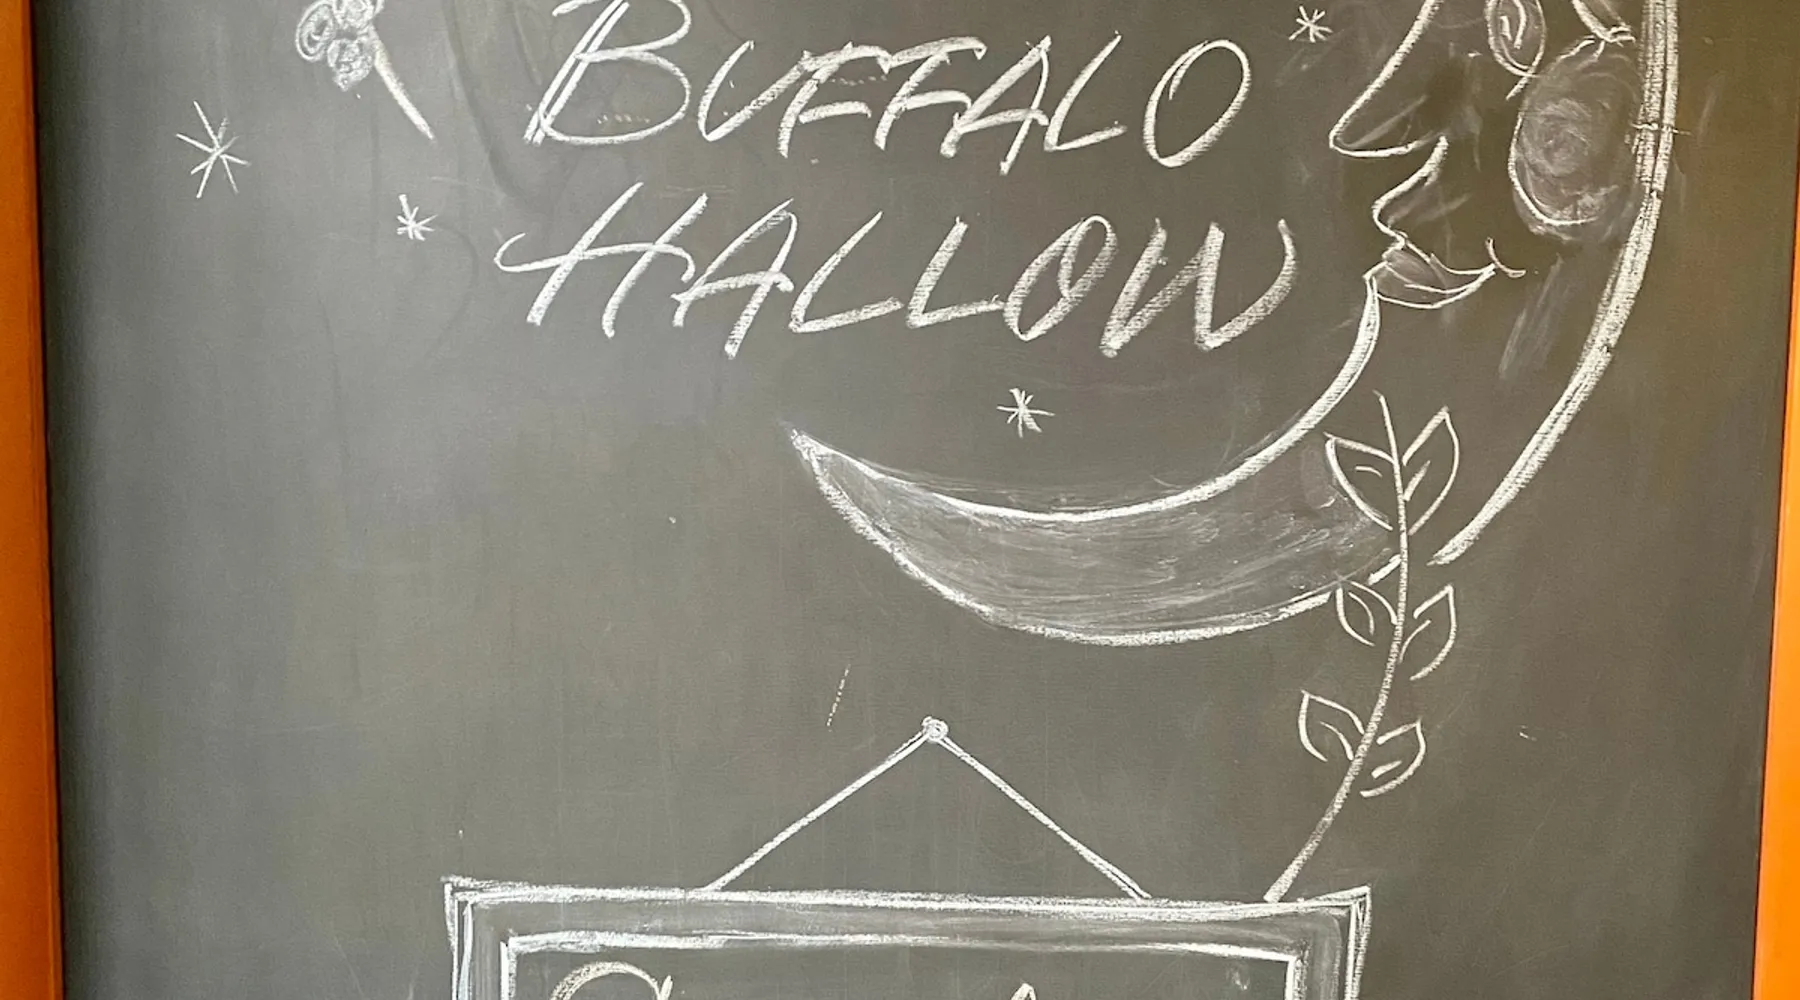 BUFFALO
HALLOW